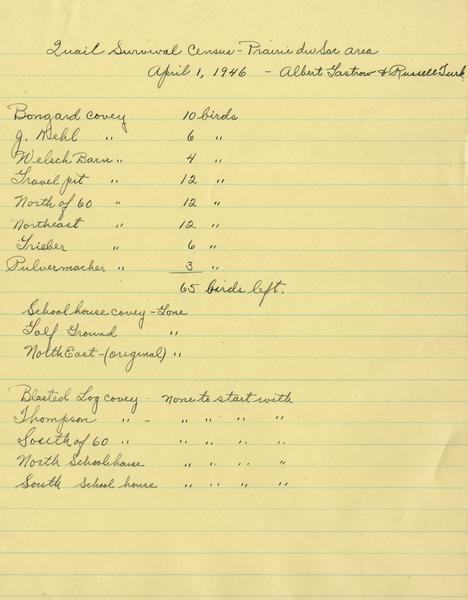 Quail Survival Census - Prairie du Sac area
April 1, 1946 - Albert Gastrow & Russell Turk
Bongard covey 10 birds
J. Mehl " 6 "
Welsch Barn " 4 "
Gravel pit " 12 "
North of 60 " 12 "
Northeast " 12 "
Grieber " 6 "
Pulvermacher " 3 "
65 birds left.
School house covey - Gone
Golf Ground "
North East - (original) "
Blasted Log covey - None to start with
Thompson " - " " " "
South of 60 " " " " "
North Schoolhouse " " " "
South School house " " " "